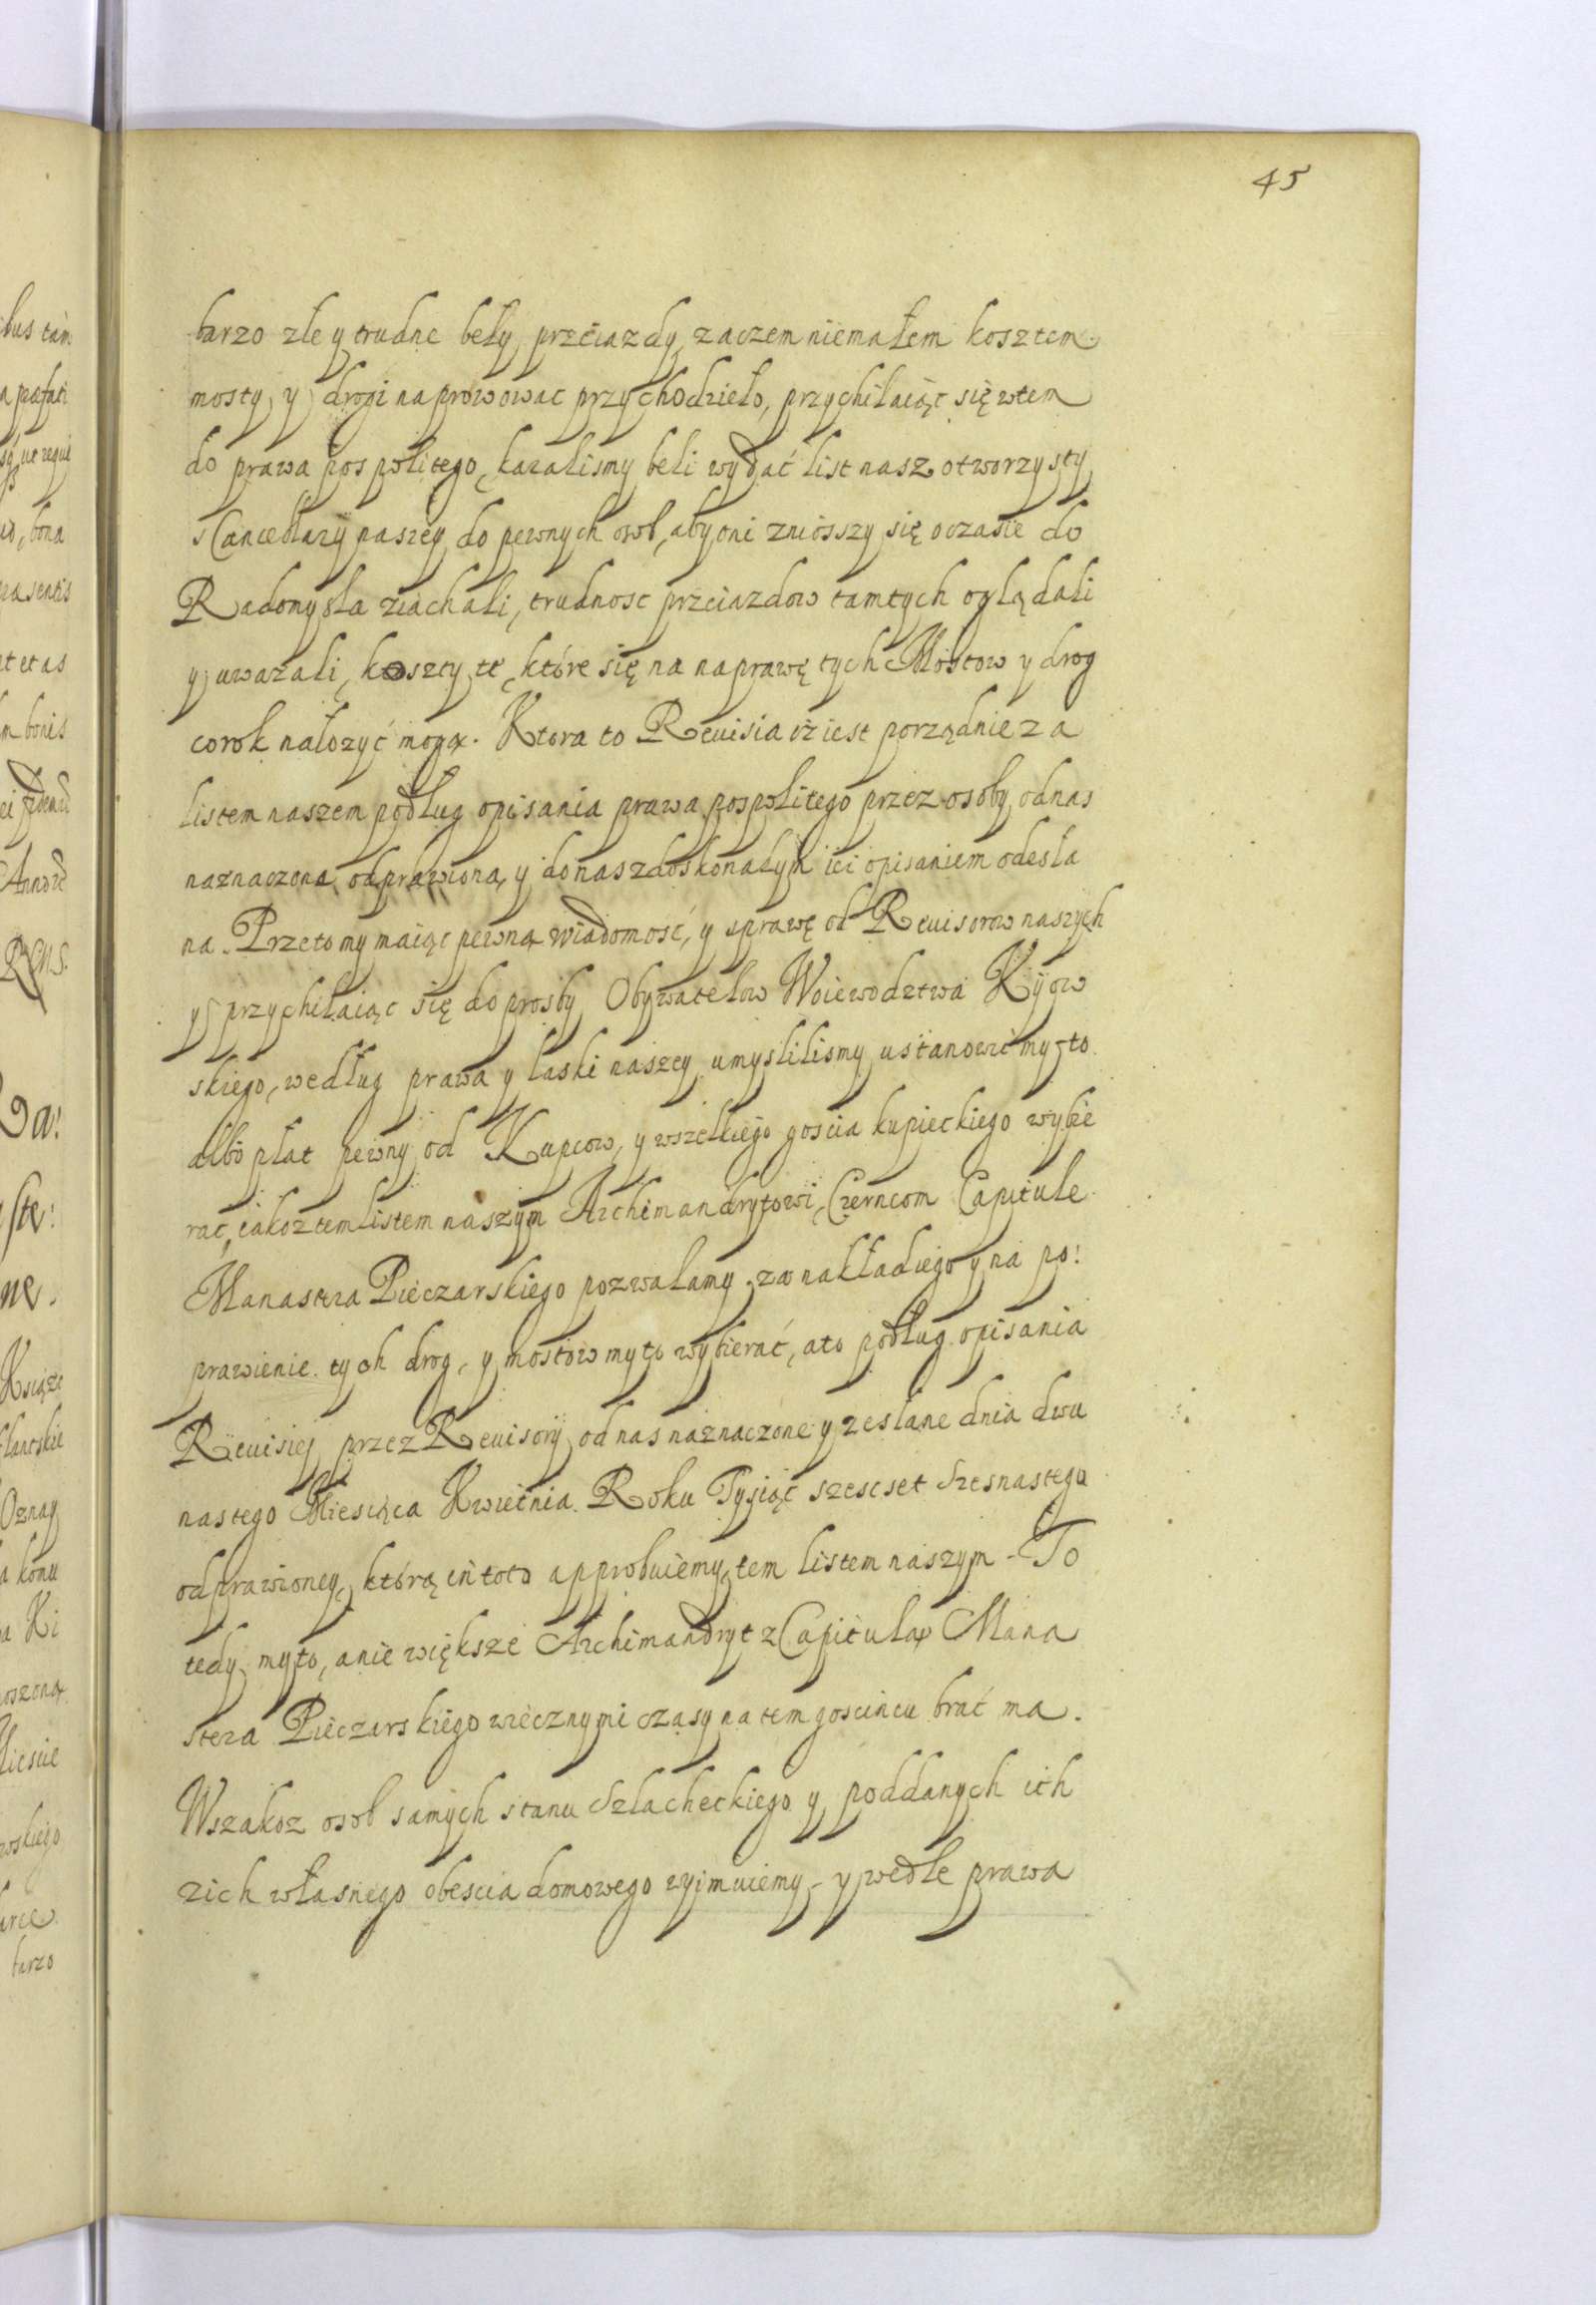 45
barzo złe y trudne beły przeiazdy, zaczem niemałem kosztem
mosty y drogi naprowowac przychodzieło, przychilaiąc się wtem
do prawa pospolitego, kazalismy beli wydać list nasz otworzysty
s Cancellarÿ naszey do pewnych osob, aby oni zniosszy się o czasie do
Radomysla ziachali, trudnosc przeiazdow tamtych oglądali
y uwazali, koszty te, które się na naprawę tych Mostow y drog
corok nałozyć mogą. Ktora to Reuisia iż iest porządnie za
listem naszem podług opisania prawa pospolitego przez osoby od nas
naznaczone odprawiona, y do nas z doskonałym iei opisaniem odesła
na. Przeto my maiąc pewną wiadomość, y sprawę od Reuisorow naszych
y przychilaiąc się do prosby Obywatelow Woiewodztwa Kÿow
skiego, według prawa y laski naszey umyslilismy ustanowić myto
albo płat pewny od Kupcow, y wszelkiego goscia kupieckiego wybie
rać, iakoz tem listem naszym Archimandrytowi, Czerncom Capitule
Manastera Pieczarskiego pozwalamy za nakład iego y na po:
prawienie tych drog, y mostow myto wybierać, a to podług opisania
Reuisiej przez Reuisorÿ od nas naznaczone y zesłane dnia dwu
nastego Miesiąca Kwietnia Roku Tysiąc szescset Szesnastego
odprawioney, którą in toto approbuiemy tem listem naszym - To
tedy myto, a nie większe Archimandryt z Capitułą Mana
stera Pieczarskiego wiecznymi czasy na tem goscincu brać ma.
Wszakoz osob samych stanu Szlacheckiego y poddanych ich
z ich własnego obescia domowego wyimuiemy - y wedle prawa